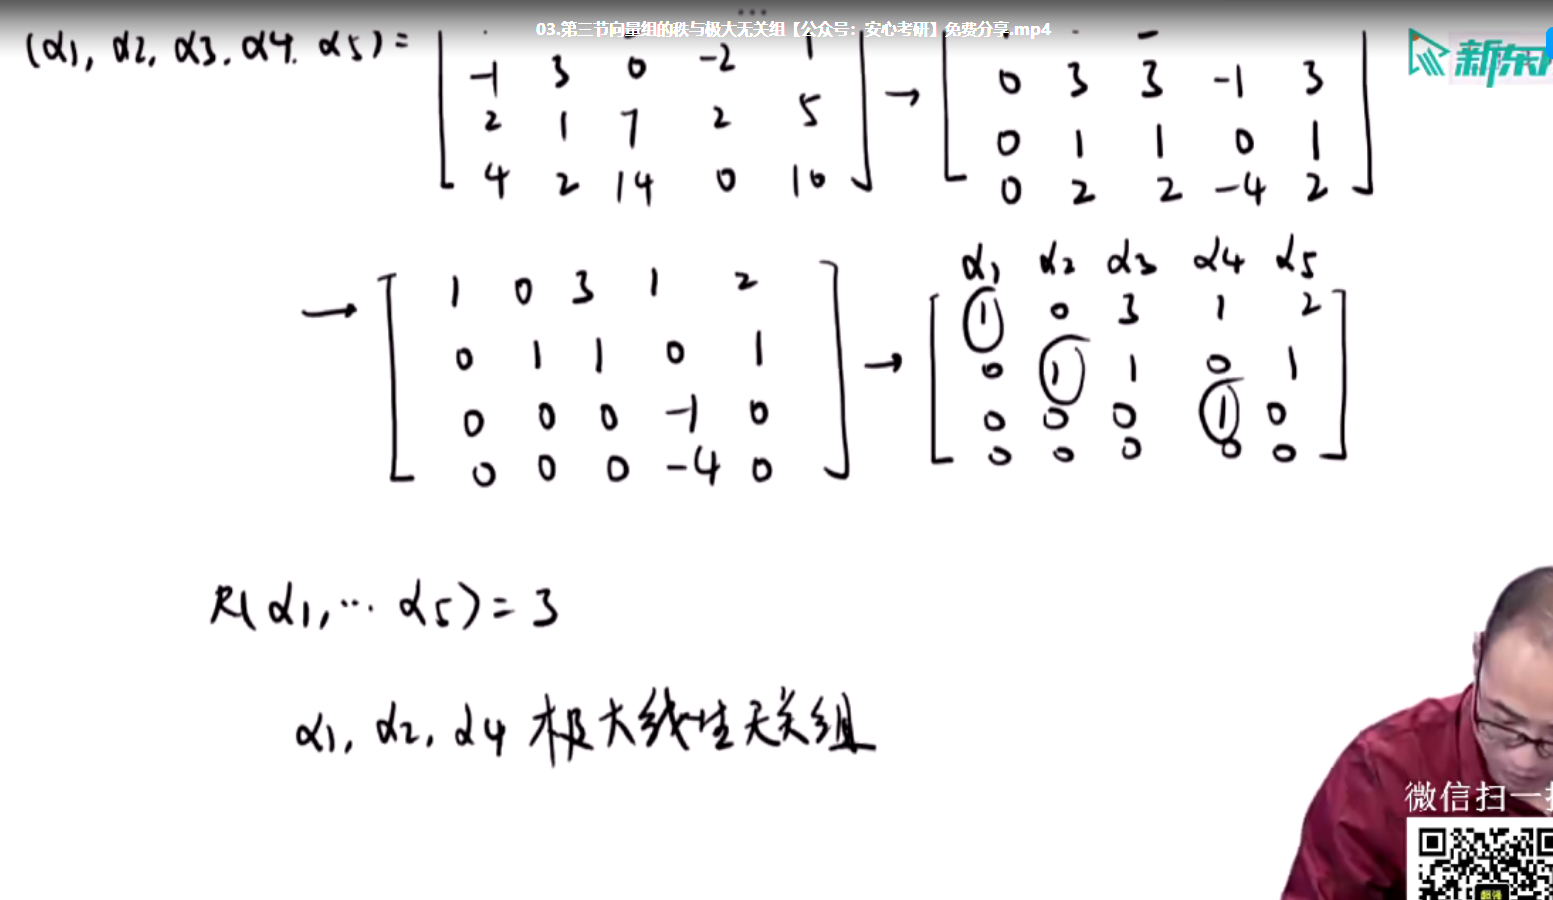 03.第三节向量组的秩与极大无关组【公众号：安心考研】免费分享.mp4
新东
(α1, α2, α3, α4, α5) =
-1 3 0 -2 1
2 1 7 2 5
4 2 14 0 10
→
0 3 3 -1 3
0 1 1 0 1
0 2 2 -4 2
→
1 0 3 1 2
0 1 1 0 1
0 0 0 -1 0
0 0 0 -4 0
→
α1 α2 α3 α4 α5
1 0 3 1 2
0 1 1 0 1
0 0 0 1 0
0 0 0 0 0
R(α1, … α5) = 3
α1, α2, α4 极大线性无关组
微信扫一